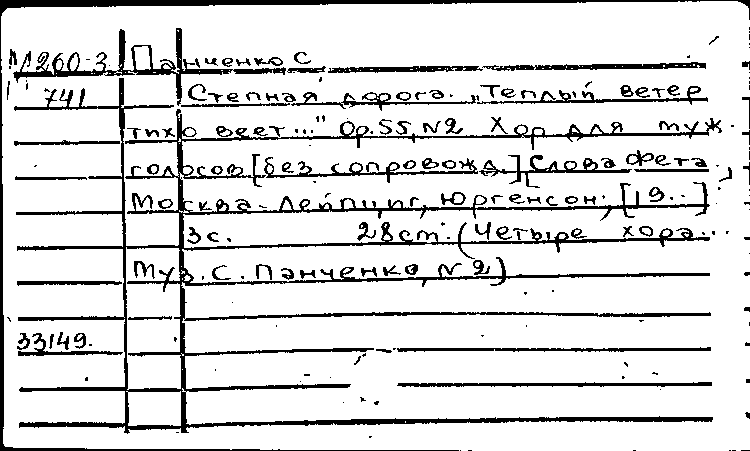 М260-3 Панченко С
741 Степная дорога. „Теплый ветер
тихо веет..." Ор.55, №2 Хор для муж.
голосов [без сопровожд.] Слова Фета.
Москва-Лейпциг, Юргенсон, [19..]
3с. 28cm. (Четыре хора...
Муз. С. Панченко, №2)
33149.